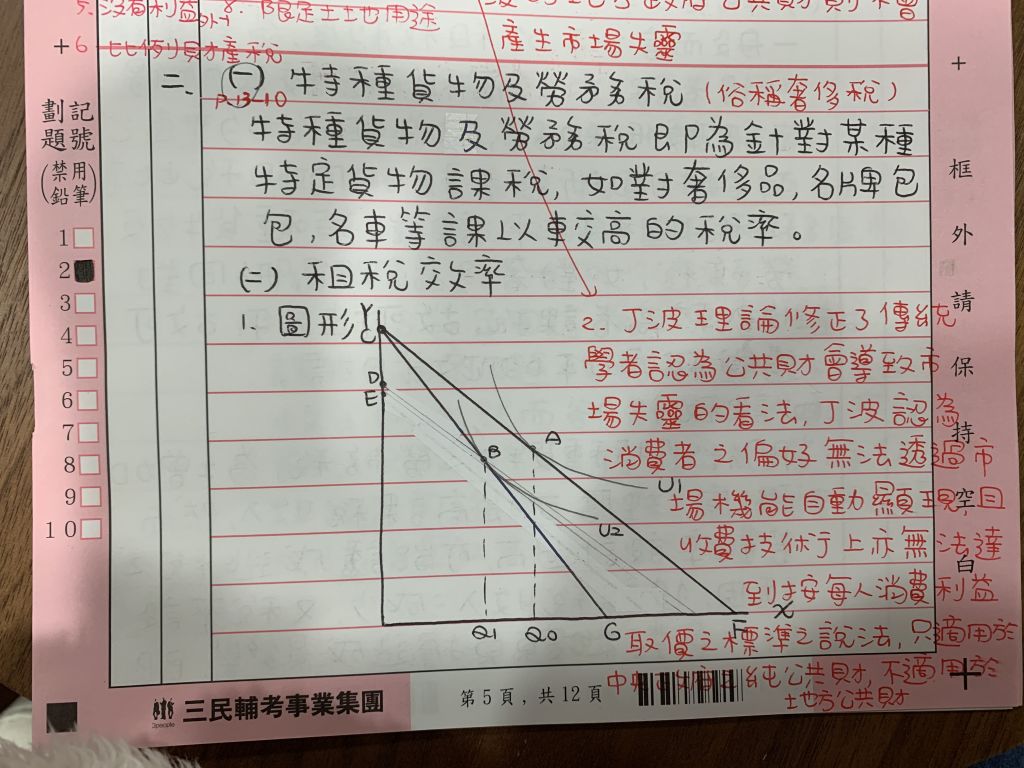 5.沒有利益 8.限定土地用途
產生市場失靈
+6 比例財產稅
二、(一) 特種貨物及勞務稅 (俗稱奢侈稅)
P.13-10
特種貨物及勞務稅即為針對某種
特定貨物課稅,如對奢侈品,名牌包
包,名車等課以較高的稅率。
(二) 租稅效率
1. 圖形
Y
C
D
E
B
A
U1
U2
Q1 Q0 G F X
2. 丁波理論修正了傳統
學者認為公共財會導致市
場失靈的看法,丁波認為
消費者之偏好無法透過市
場機能自動顯現,且
收費技術于上亦無法達
到按每人消費利益
取價之標準之說法,只適用於
純公共財,不適用於
地方公共財
劃記
題號
(禁用
鉛筆)
1
2
3
4
5
6
7
8
9
10
+
框
外
請
保
持
空
白
+
3people
三民輔考事業集團
第5頁,共12頁